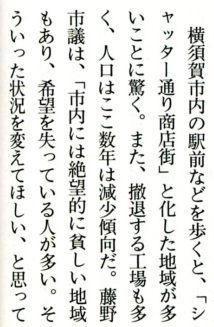 横須賀市内の駅前などを歩くと、「シ
ャッター通り商店街」と化した地域が多
いことに驚く。また、撤退する工場も多
く、人口はここ数年は減少傾向だ。藤野
市議は、「市内には絶望的に貧しい地域
もあり、希望を失っている人が多い。そ
ういった状況を変えてほしい、と思って